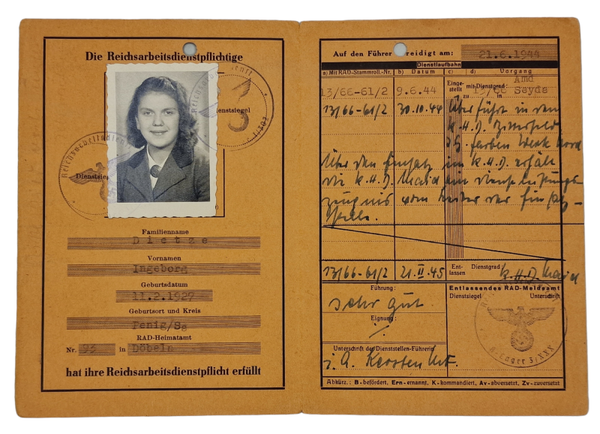 Die Reichsarbeitsdienstpflichtige
Dienstsiegel
Dienstsiegel
Familienname
Dietze
Vornamen
Ingeborg
Geburtsdatum
11.2.1927
Geburtsort und Kreis
Penig/Sa
RAD-Heimatamt
Nr. 93 in Döbeln
hat ihre Reichsarbeitsdienstpflicht erfüllt
Auf den Führer vereidigt am: 21.6.1944
Dienstlaufbahn
a) Mit RAD-Stammroll.-Nr. b) Datum c) d) Vorgang
13/66-61/2 9.6.44 Eingestellt mit Dienstgrad: Amd
zu in 13/66 Seyda
13/66-61/2 30.10.44 Überführt in den
K.H.D.
Farben Werk Nord
Über den Einsatz im K.H.D. erhält
die K.H.D. Maid ein
vom Leiter der
13/66-61/2 21.II.45 Entlassen Dienstgrad: K.H.D. Maid
Führung:
sehr gut.
Eignung:
Entlassendes RAD-Meldeamt
Dienstsiegel Unterschrift
Unterschrift des Dienststellen-Führers
i.A. Kersten
Abkürz.: B - befördert, Ern - ernannt, K - kommandiert, Av - abversetzt, Zv - zuversetzt